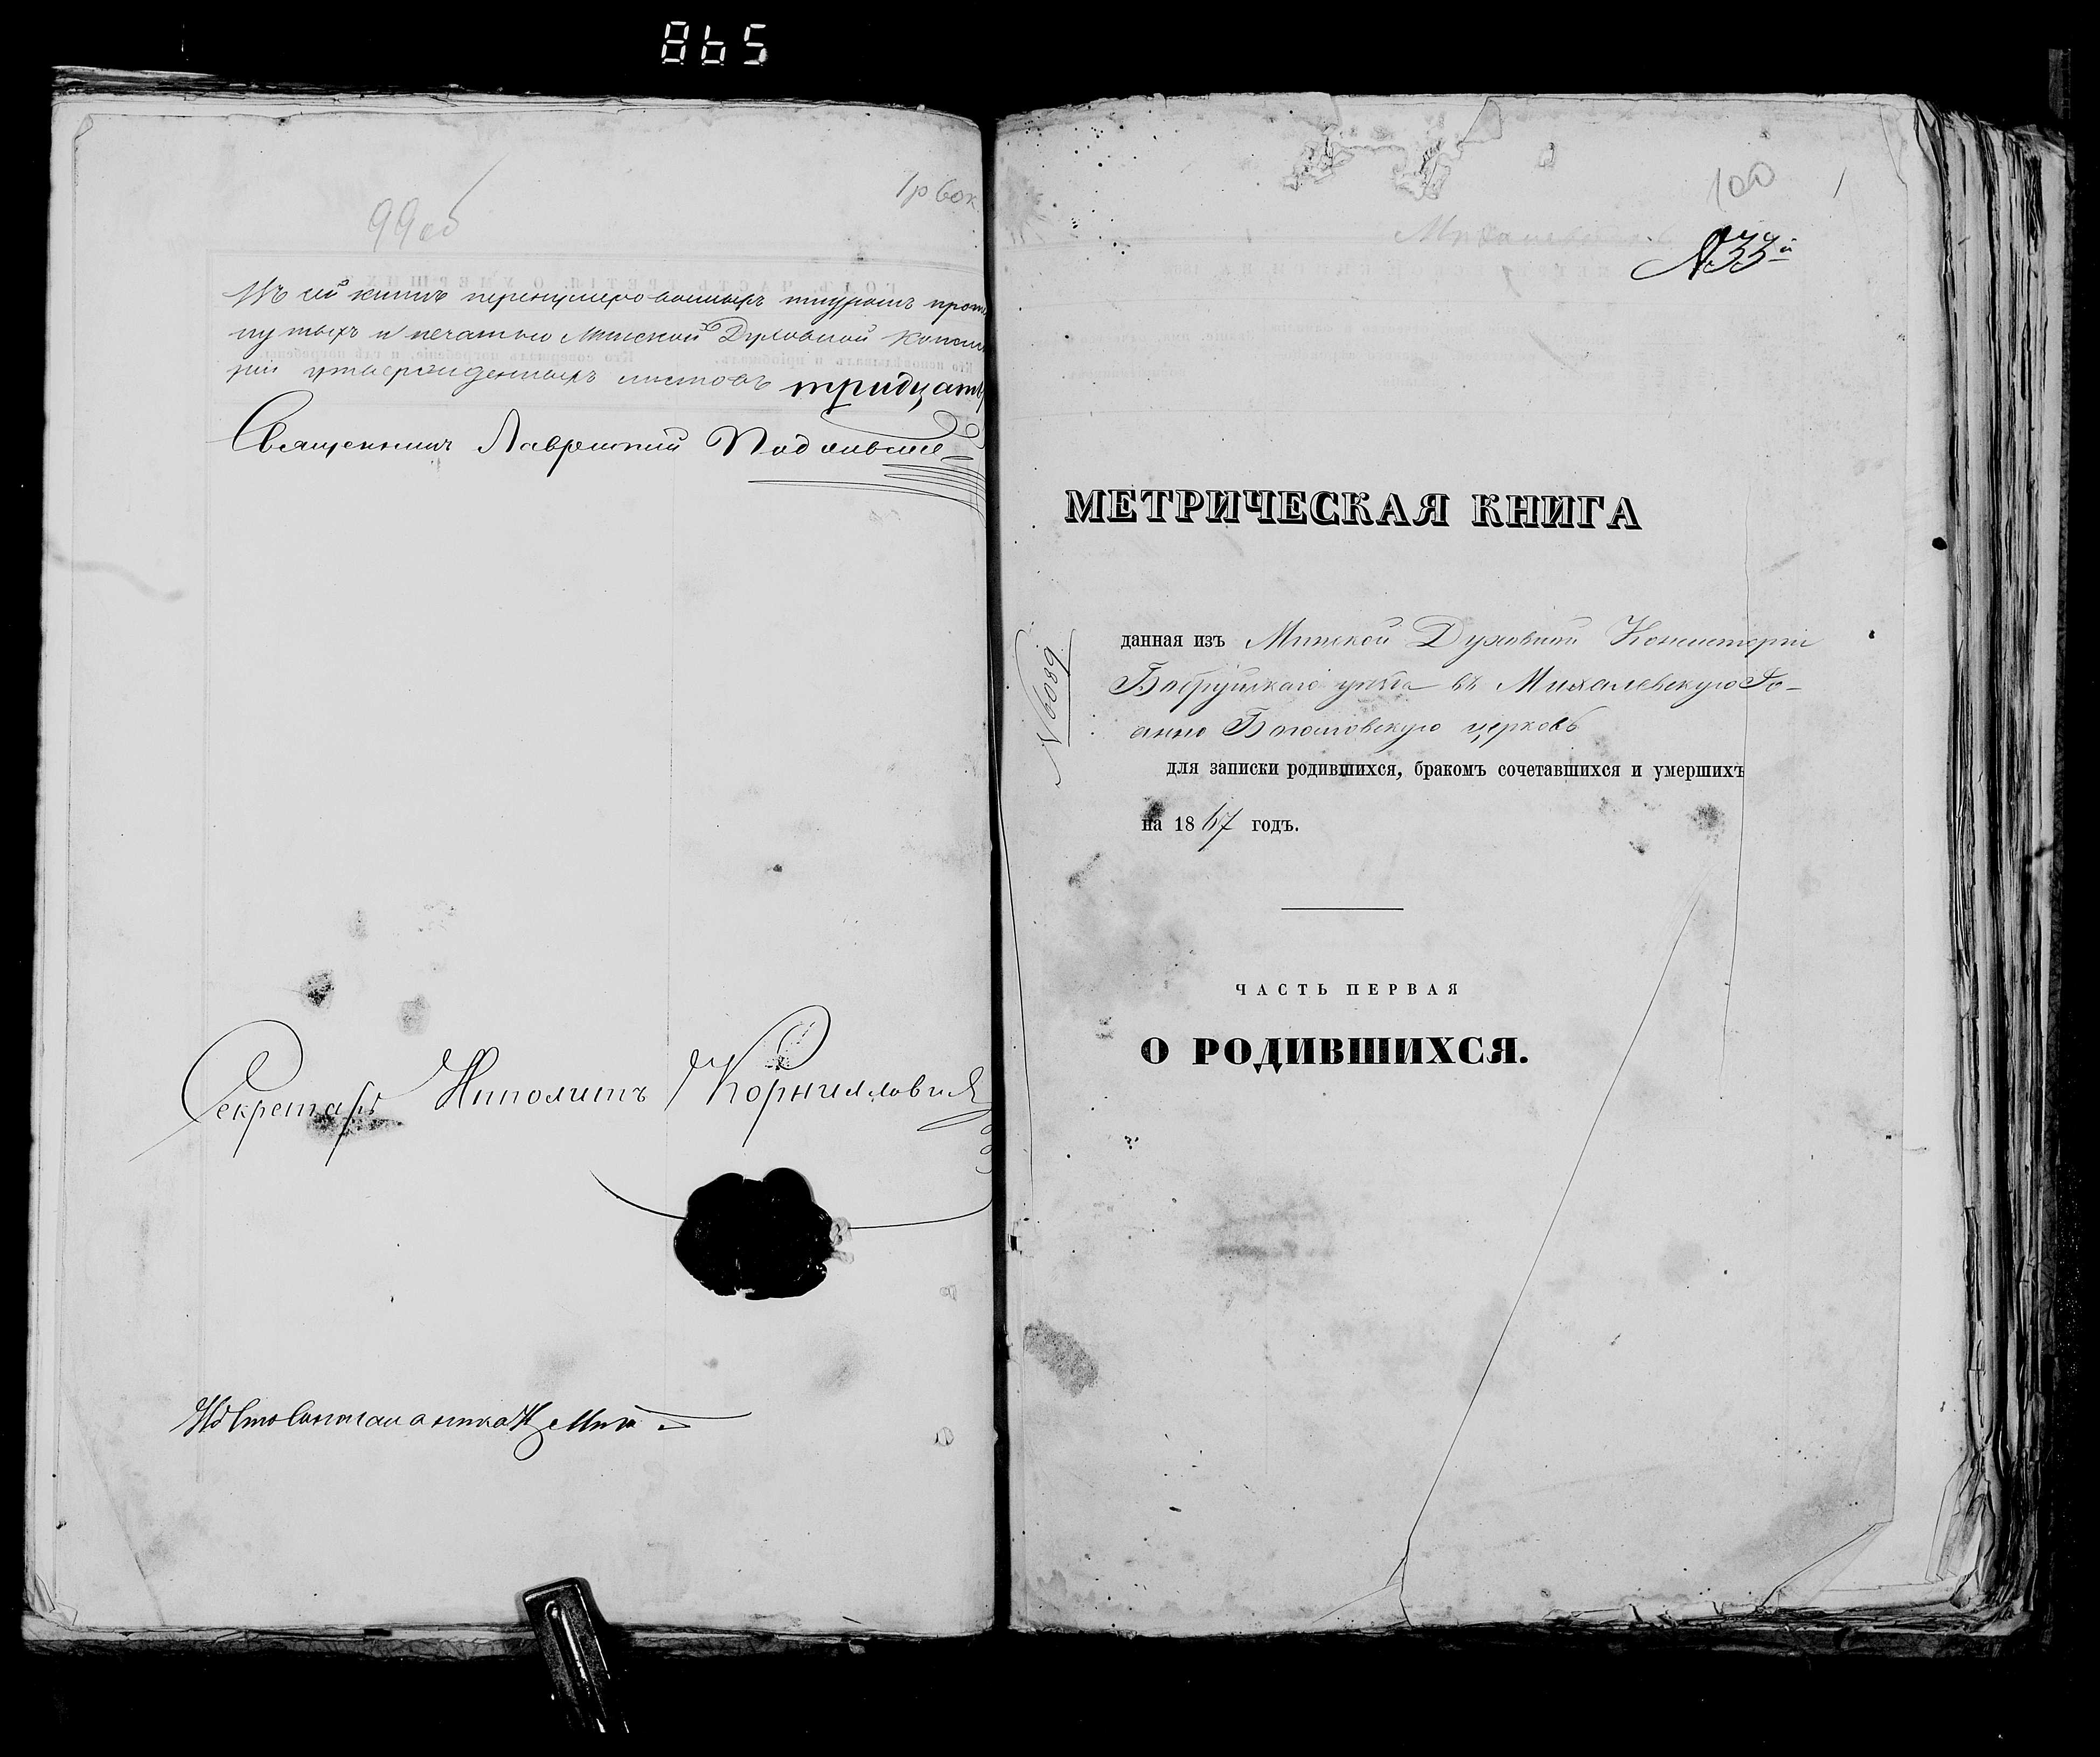 865
99об
1р 60к
Въ сей книгѣ перенумерованныхъ шнуромъ про
нутыхъ и печатью Минской Духовной Конси
ріи утвержденныхъ листовъ тридцать
Священникъ Лаврентій
Секретарь Ипполитъ Корниловичъ
100
1
№33й
МЕТРИЧЕСКАЯ КНИГА
№6089
данная изъ Минской Духовной Консисторіи
Бобруйскаго уѣзда въ Михалевскую Іо-
анно Богословскую церковь
для записки родившихся, бракомъ сочетавшихся и умершихъ
на 1867 годъ.
ЧАСТЬ ПЕРВАЯ
О РОДИВШИХСЯ.